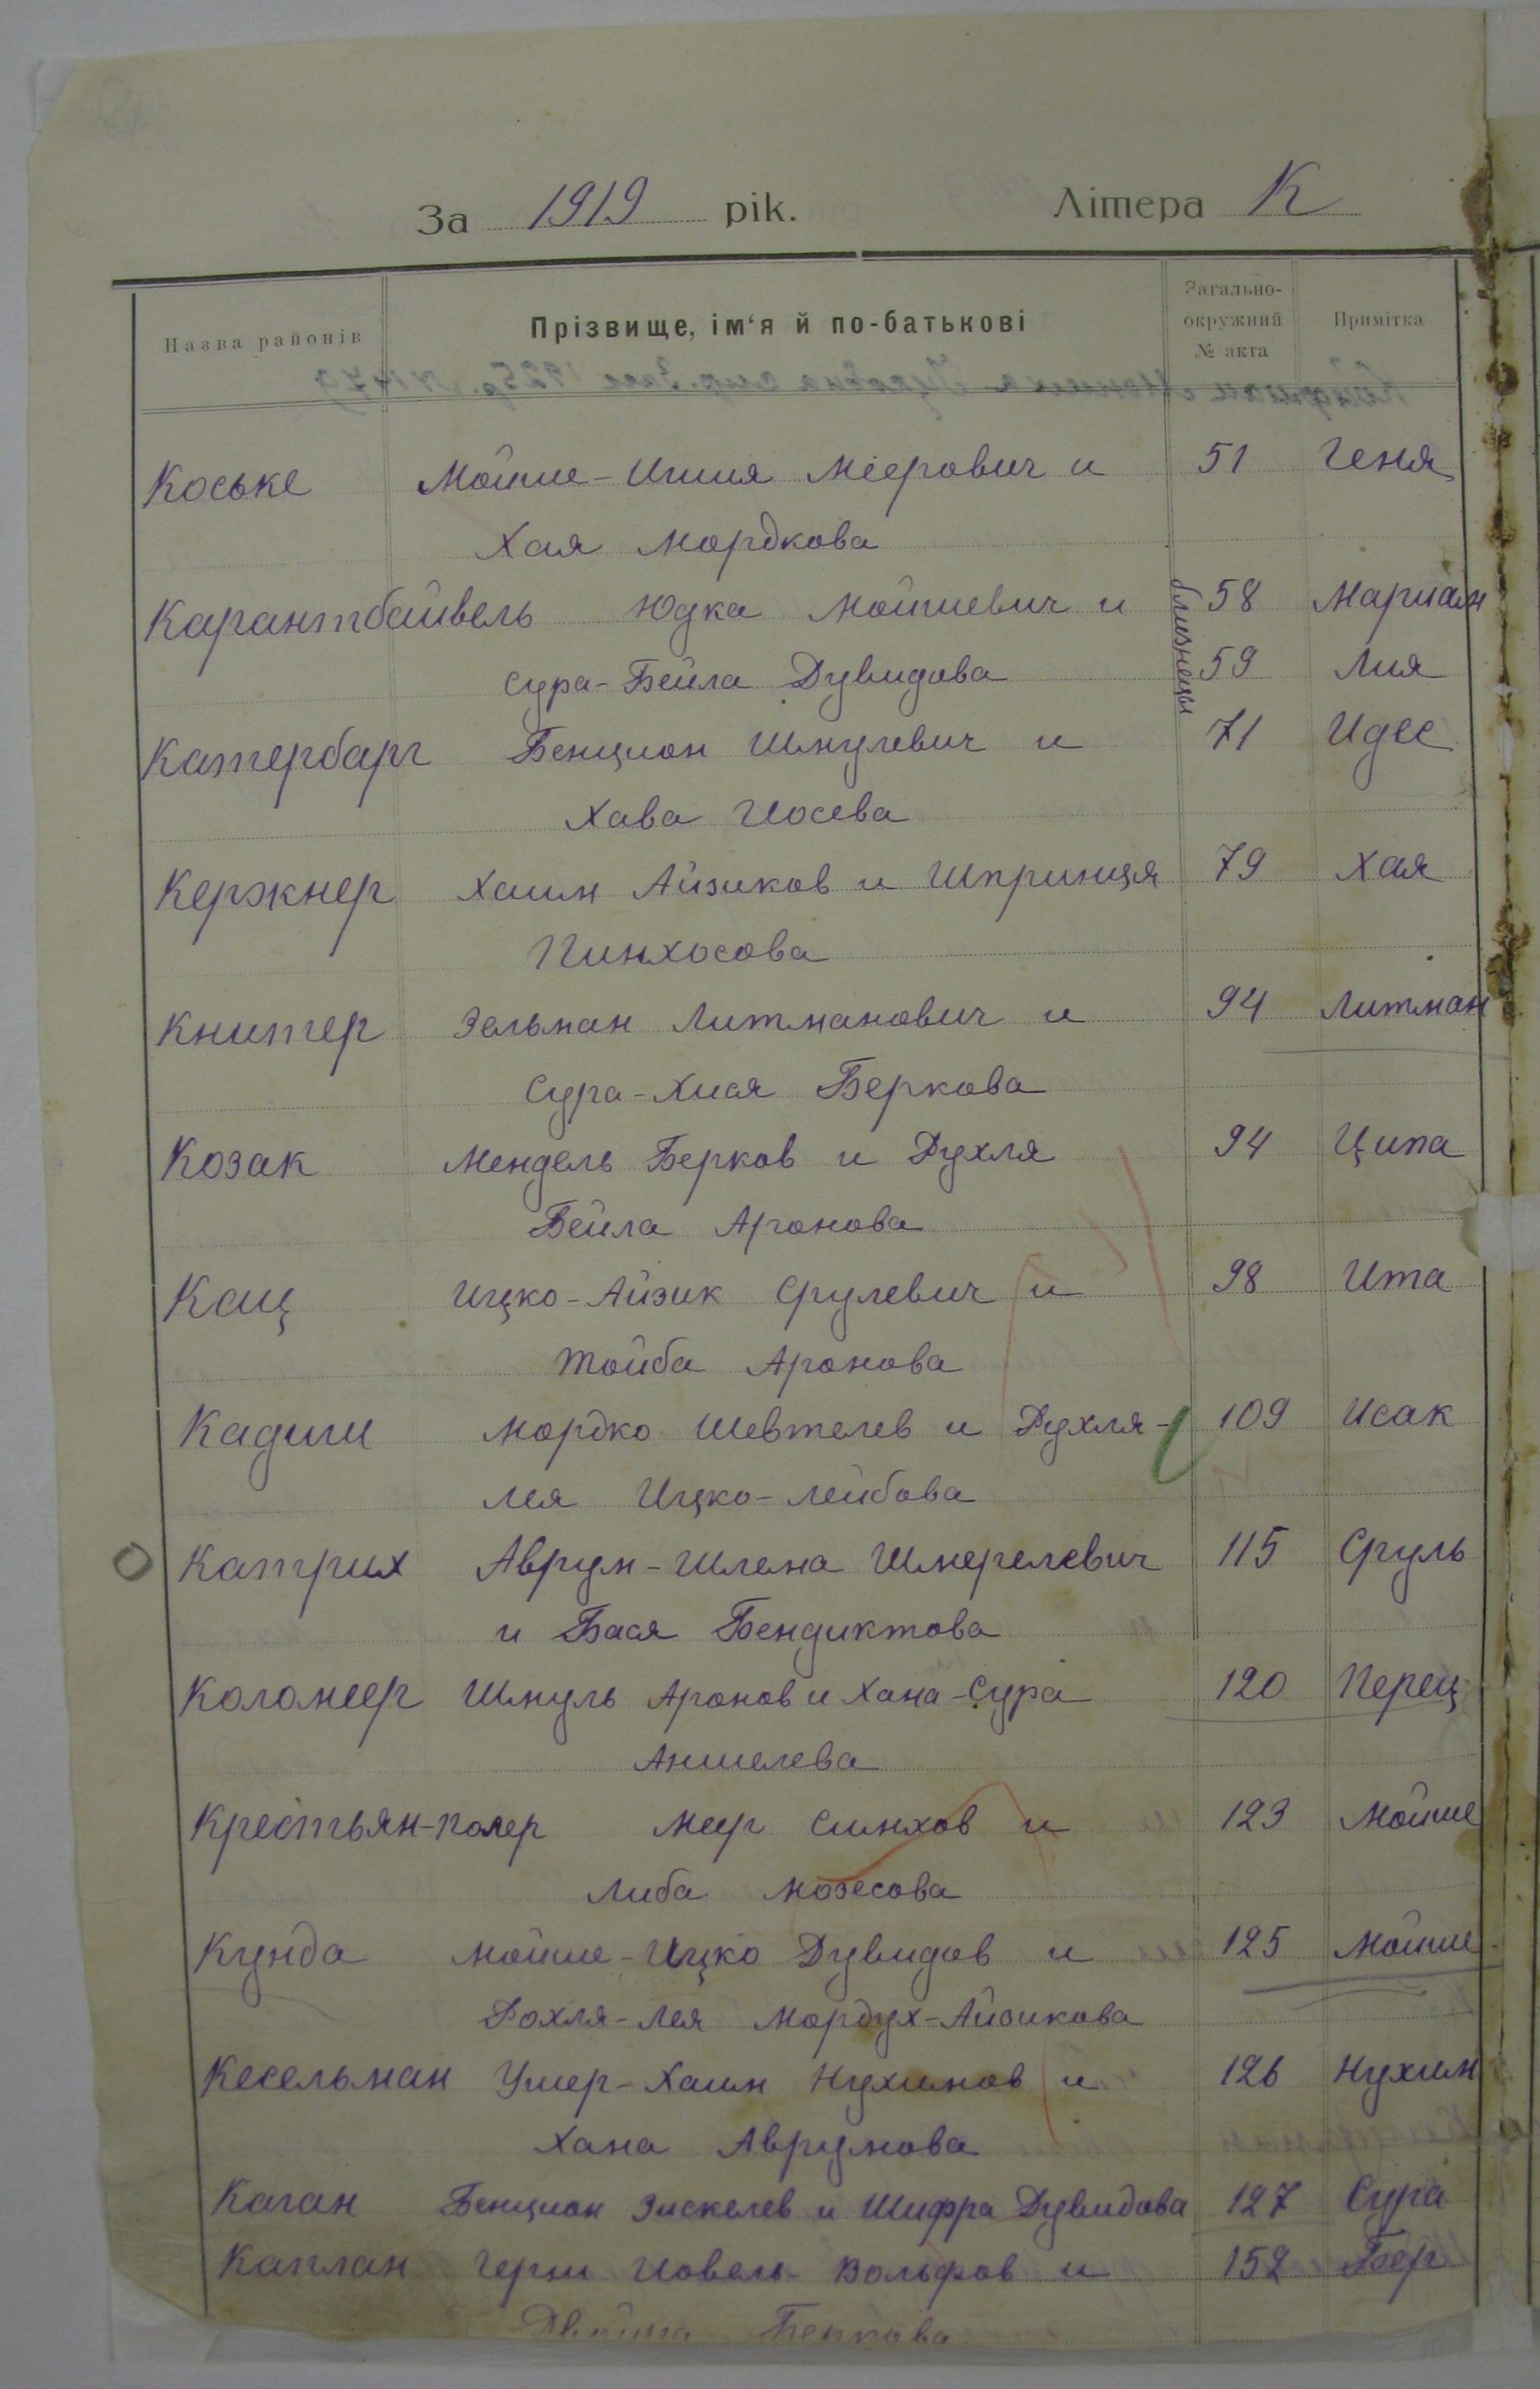 За 1919 рік. Літера К
Назва районів Прізвище, ім‘я й по-батькові Загально-окружний № акта Примітка
Коське Мойше-Ишия Меерович и 51 Геня
Хая Мордкова
Карантбайвель Юдка Мойшевич и близнецы 58 Мариам
Сура-Бейла Дувидова 59 Лия
Катербарг Бенцион Шмулевич и 71 Идес
Хава Иосева
Кержнер Хаим Айзиков и Шпринця 79 Хая
Пинхосова
Книпер Зельман Литманович и 94 Литман
Сура-Хися Беркова
Козак Мендель Берков и Рухля 94 Ципа
Бейла Аронова
Кац Ицко-Айзик Срулевич и 98 Ита
Тойба Аронова
Кадиш Мордко Шевтелев и Рухля- 109 Исак
Лея Ицко-Лейбова
Катрих Аврум-Шлема Шмерелевич 115 Сруль
и Бася Бендиктова
Коломеер Шмуль Аронов и Хана-Сура 120 Перец
Аншелева
Крестьян-полер Меер Симхов и 123 Мойше
Либа Мозесова
Кунда Мойше-Ицко Дувидов и 125 Мойше
Рохля-Лея Мордух-Айзикова
Кесельман Ушер-Хаим Нухимов и 126 Нухим
Хана Аврумова
Каган Бенцион Эискелев и Шифра Дувидова 127 Сура
Каплан Герш Иовель Вольфов и 152 Бер
Двойра Беркова